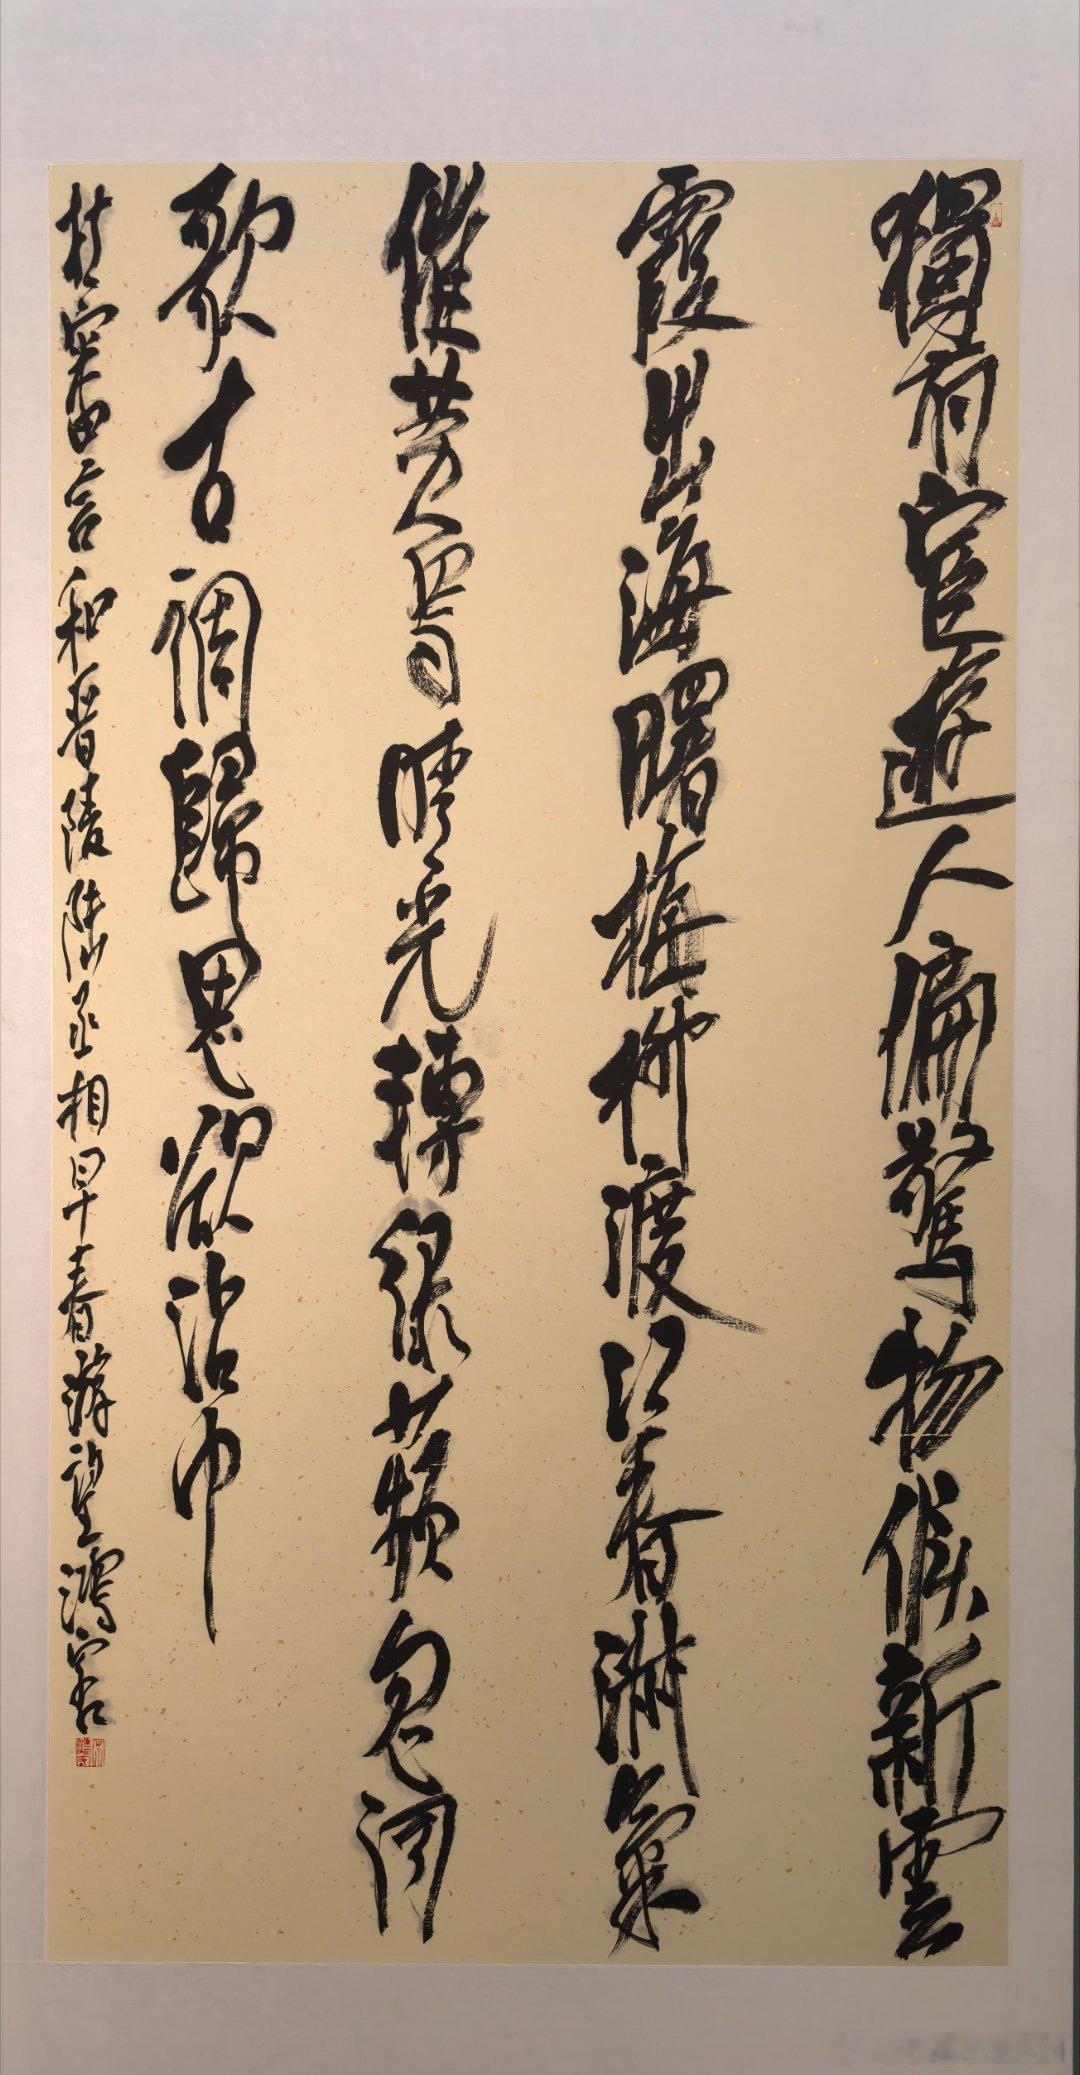 獨有宦遊人偏驚物候新雲
霞出海曙梅柳渡江春淑氣
催黄鳥晴光轉緑蘋忽聞
歌古調歸思欲沾巾
杜審言和晉陵陸丞相早春游望鴻